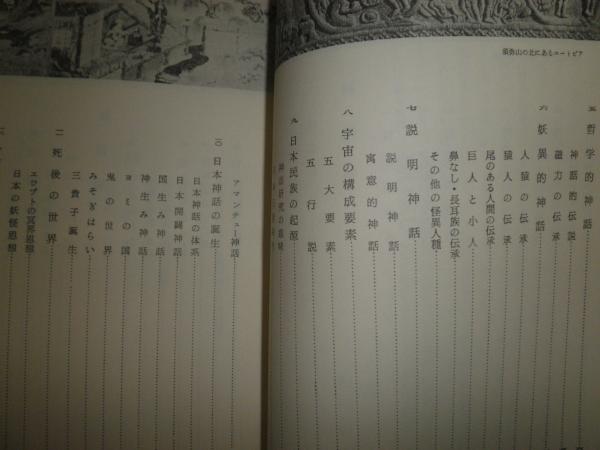 須弥山の北にあるユートピア
五 哲学的神話
神話的伝説
磁力の伝承
六 妖異的神話
人猿の伝承
猿人の伝承
尾のある人間の伝承
巨人と小人
鼻なし・長耳族の伝承
その他の怪異人種
七 説明神話
説明神話
寓意的神話
八 宇宙の構成要素
五大要素
五行説
九 日本民族の起源
神話研究の意味
アマンチュー神話
一〇 日本神話の誕生
日本神話の体系
日本開闢神話
国生み神話
神生み神話
ヨミの国
鬼の世界
みそぎはらい
三貴子誕生
一一 死後の世界
エジプトの冥界思想
日本の妖怪思想